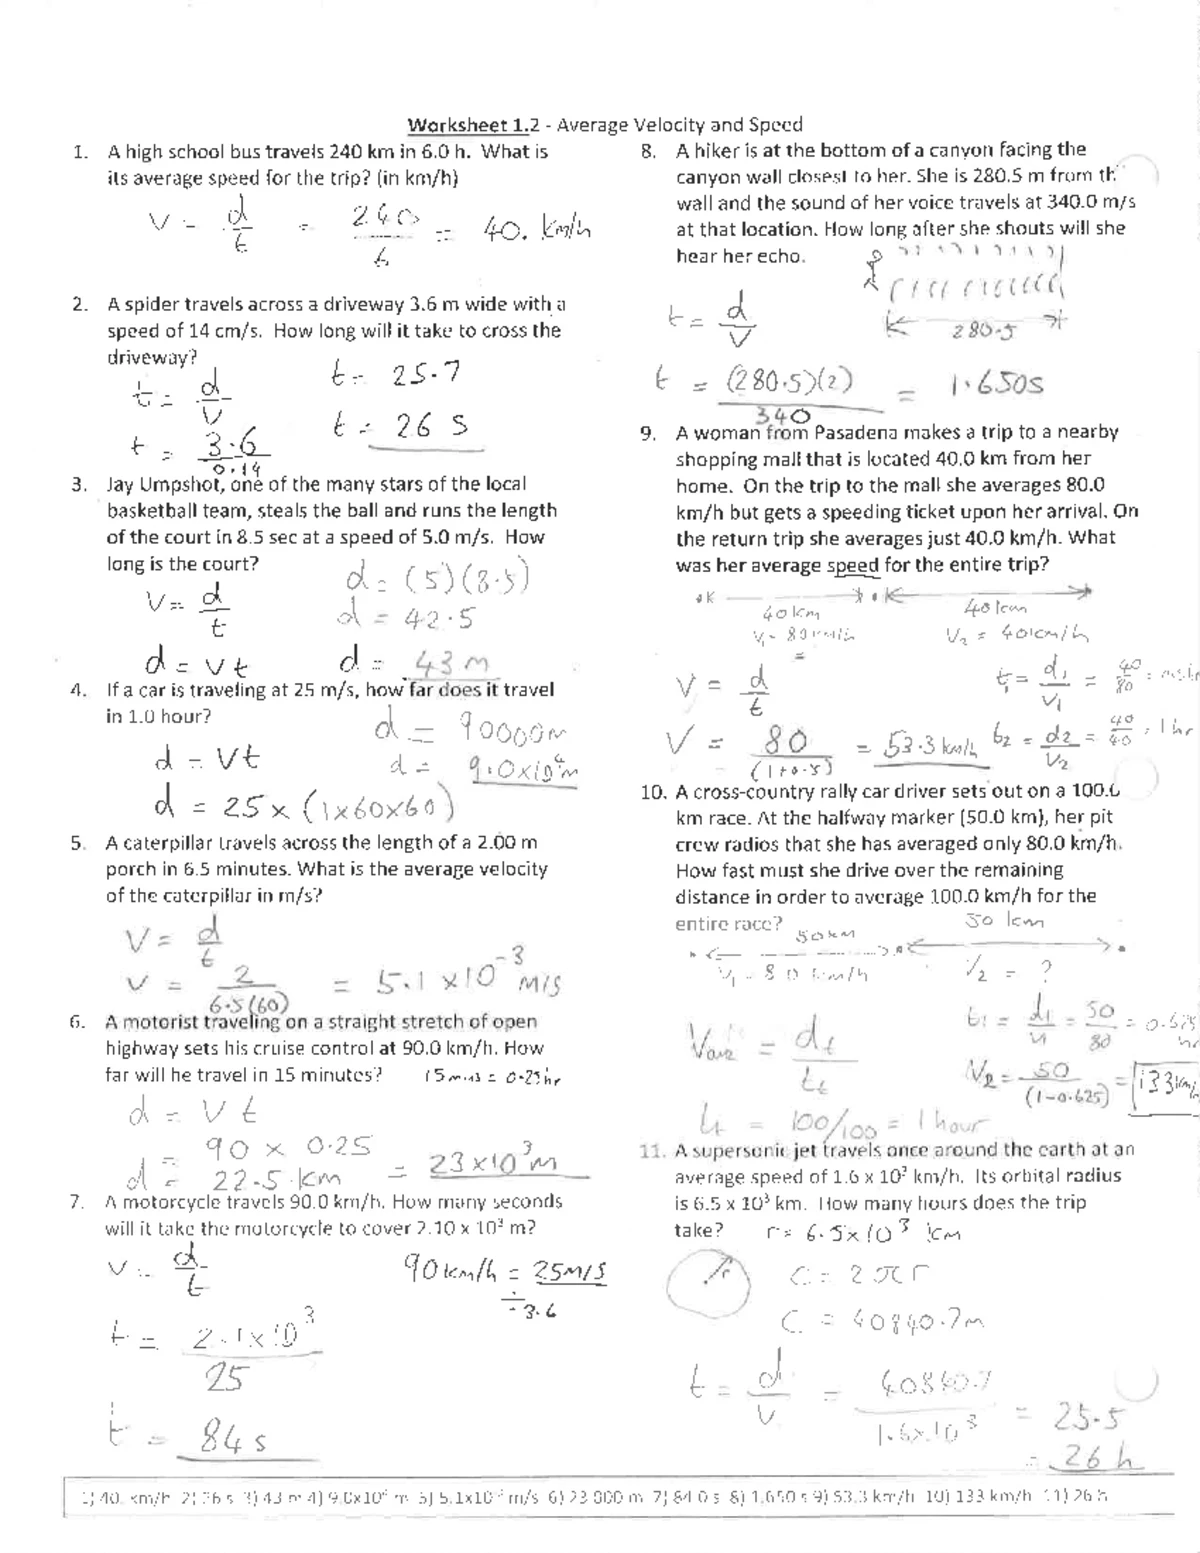 Worksheet 1.2 - Average Velocity and Speed
1. A high school bus travels 240 km in 6.0 h. What is
its average speed for the trip? (in km/h)
v = d/t = 240/6 = 40. km/h
2. A spider travels across a driveway 3.6 m wide with a
speed of 14 cm/s. How long will it take to cross the
driveway?
t = d/v
t = 25.7
t = 3.6/0.14
t = 26 s
3. Jay Umpshot, one of the many stars of the local
basketball team, steals the ball and runs the length
of the court in 8.5 sec at a speed of 5.0 m/s. How
long is the court?
d = (5)(8.5)
v = d/t
d = 42.5
d = vt
d = 43 m
4. If a car is traveling at 25 m/s, how far does it travel
in 1.0 hour?
d = 90000m
d = vt
d = 9.0x10⁴m
d = 25 x (1x60x60)
5. A caterpillar travels across the length of a 2.00 m
porch in 6.5 minutes. What is the average velocity
of the caterpillar in m/s?
v = d/t
v = 2/6.5(60) = 5.1 x10⁻³ m/s
6. A motorist traveling on a straight stretch of open
highway sets his cruise control at 90.0 km/h. How
far will he travel in 15 minutes? 15 mins = 0.25hr
d = v t
= 90 x 0.25
d = 22.5 km = 23x10³m
7. A motorcycle travels 90.0 km/h. How many seconds
will it take the motorcycle to cover 2.10 x 10³ m?
v = d/t
90km/h = 25m/s
÷3.6
t = 2.1x10³/25
t = 84 s
8. A hiker is at the bottom of a canyon facing the
canyon wall closest to her. She is 280.5 m from th
wall and the sound of her voice travels at 340.0 m/s
at that location. How long after she shouts will she
hear her echo.
t = d/v
280.5
t = (280.5)(2)/340 = 1.650s
9. A woman from Pasadena makes a trip to a nearby
shopping mall that is located 40.0 km from her
home. On the trip to the mall she averages 80.0
km/h but gets a speeding ticket upon her arrival. On
the return trip she averages just 40.0 km/h. What
was her average speed for the entire trip?
40km 40km
V₁ = 80km/h V₂ = 40km/h
v = d/t
t₁ = d₁/v₁ = 40/80
v = 80/(1+0.5) = 53.3 km/h
t₂ = d₂/v₂ = 40/40 = 1 hr
10. A cross-country rally car driver sets out on a 100.0
km race. At the halfway marker (50.0 km), her pit
crew radios that she has averaged only 80.0 km/h.
How fast must she drive over the remaining
distance in order to average 100.0 km/h for the
entire race?
50km 50 km
V₁ = 80 km/h V₂ = ?
t₁ = d₁/v₁ = 50/80 = 0.625 hr
= dt/tt
V₂ = 50/(1-0.625) = 133km/h
tt = 100/100 = 1 hour
11. A supersonic jet travels once around the earth at an
average speed of 1.6 x 10³ km/h. Its orbital radius
is 6.5 x 10³ km. How many hours does the trip
take? r = 6.5x10³ km
r
C = 2πr
C = 40840.7m
t = d/v = 40840.7/1.6x10³ = 25.5
= 26 h
1) 40. km/h 2) 26 s 3) 43 m 4) 9.0x10⁴ m 5) 5.1x10⁻³ m/s 6) 23 000 m 7) 84.0 s 8) 1.650 s 9) 53.3 km/h 10) 133 km/h 11) 26 h